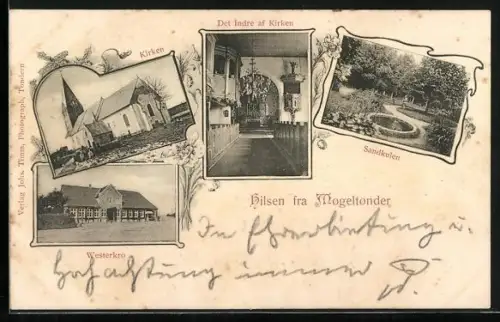 Det Indre af Kirken
Kirken
Sandkulen
Westerkro
Verlag Johs. Timm, Photograph, Tondern
Hilsen fra Mogeltonder
In Ehrerbietung u.
Hochachtung immer